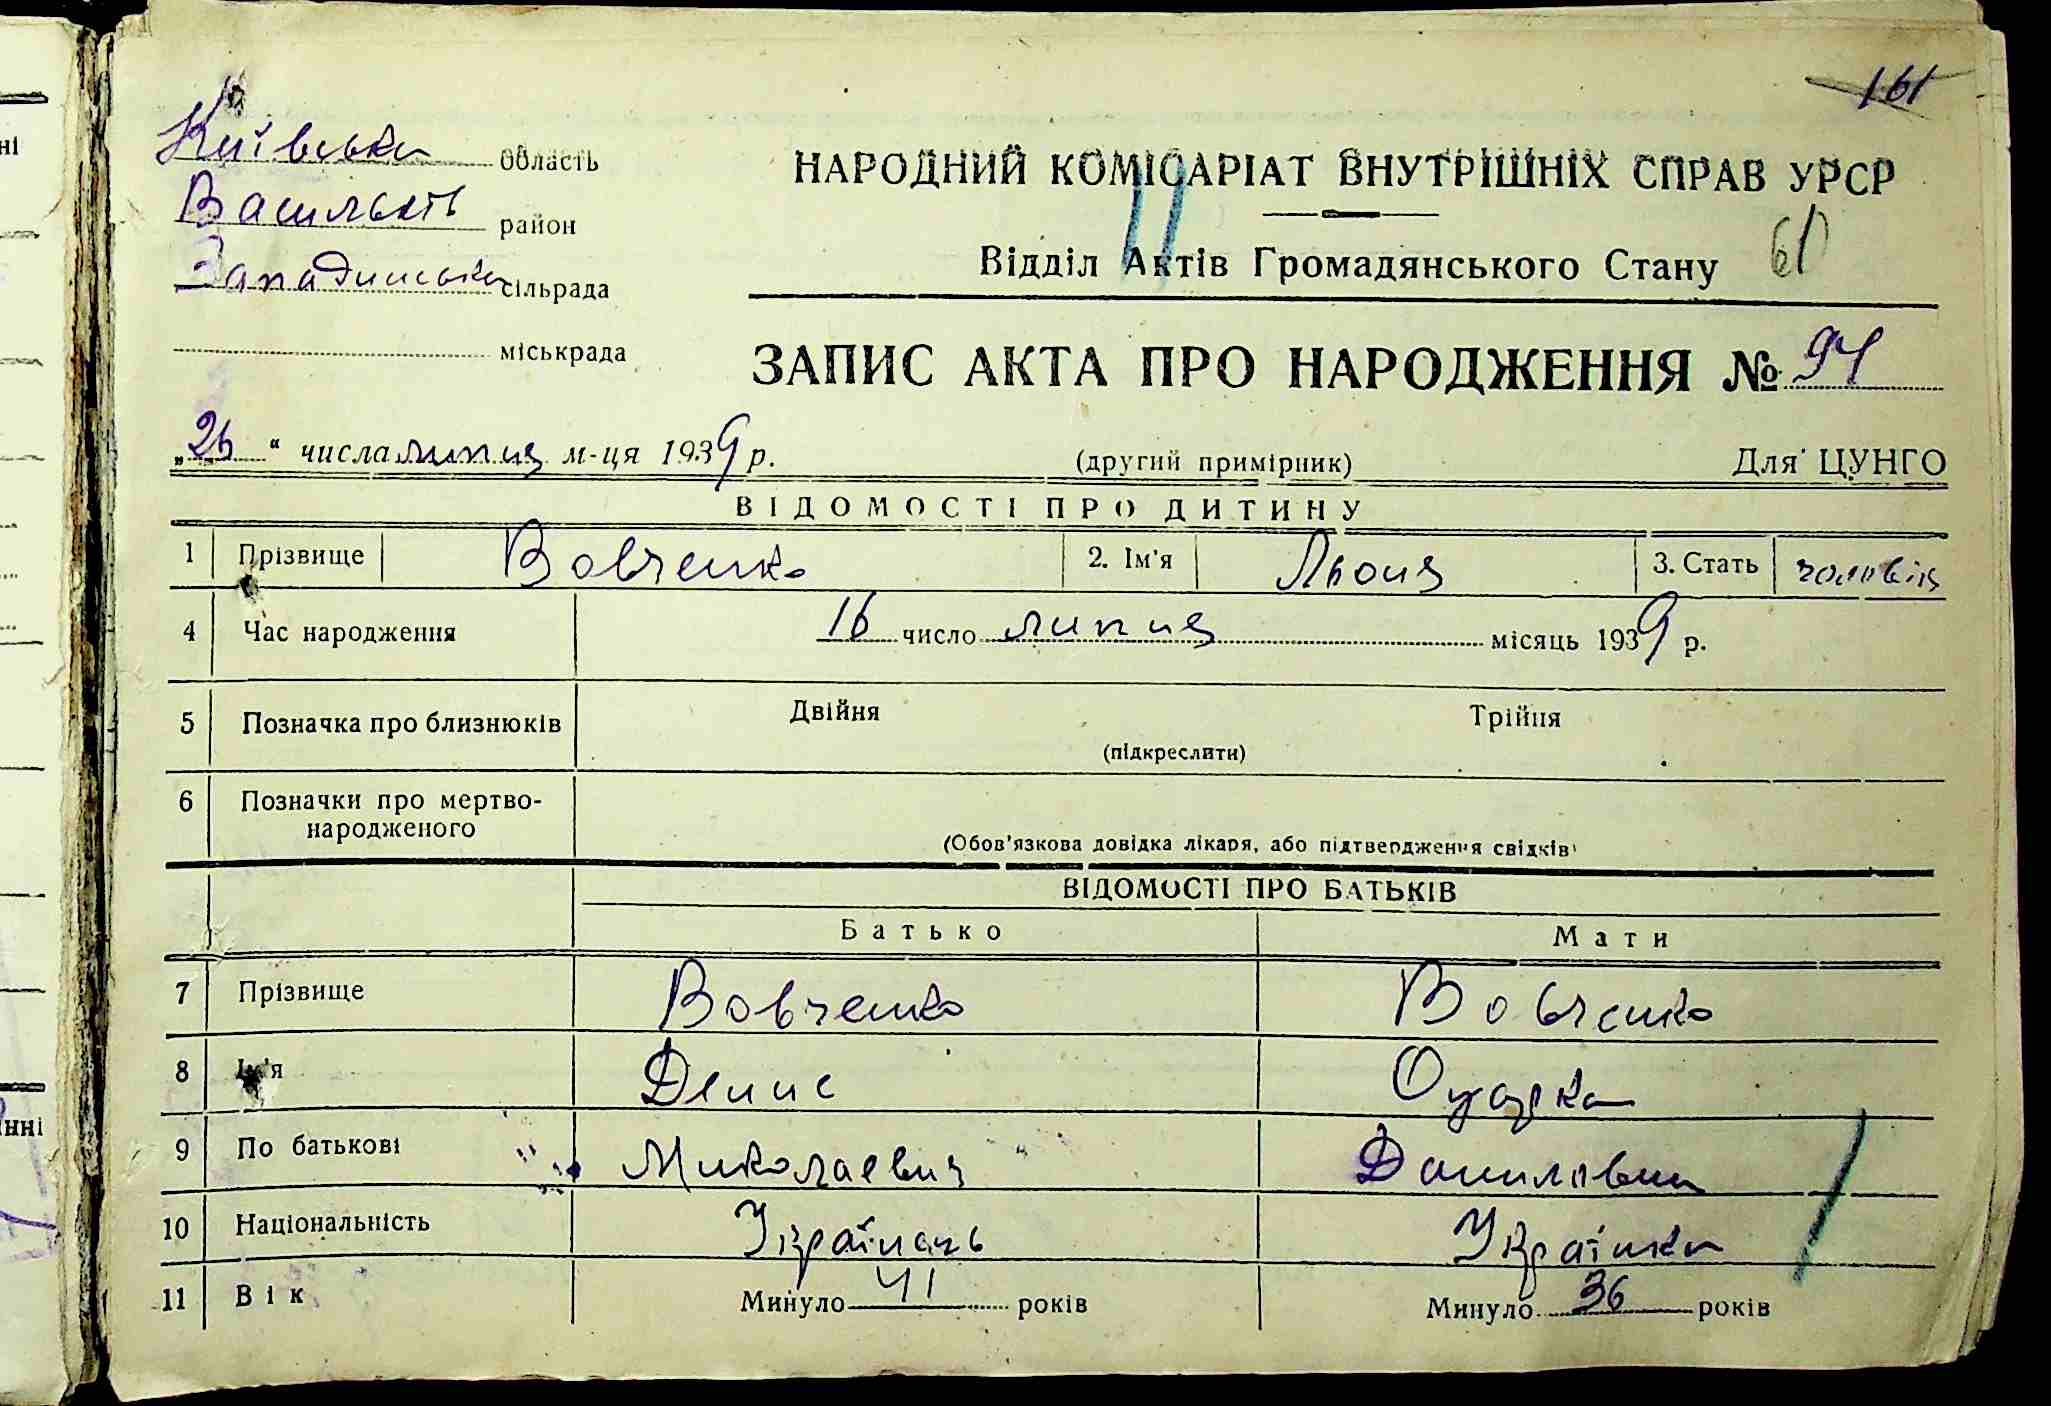 161
Київська область
НАРОДНИЙ КОМІСАРІАТ ВНУТРІШНІХ СПРАВ УРСР
район
Відділ Актів Громадянського Стану 61
сільрада
міськрада
ЗАПИС АКТА ПРО НАРОДЖЕННЯ № 94
„26“ числа липця м-ця 1939 р. (другий примірник) Для ЦУНГО
ВІДОМОСТІ ПРО ДИТИНУ
1 Прізвище Вовченко 2. Ім'я Льоня 3. Стать
4 Час народження 16 число липця місяць 1939 р.
5 Позначка про близнюків Двійня Трійня
(підкреслити)
6 Позначки про мертво-
народженого
(Обов'язкова довідка лікаря, або підтвердження свідків)
ВІДОМОСТІ ПРО БАТЬКІВ
Батько Мати
7 Прізвище Вовченко Вовченко
8 Ім'я Денис
9 По батькові Миколаевич Даниловна
10 Національність Українець Українка
11 Вік Минуло 41 років Минуло 36 років
нні